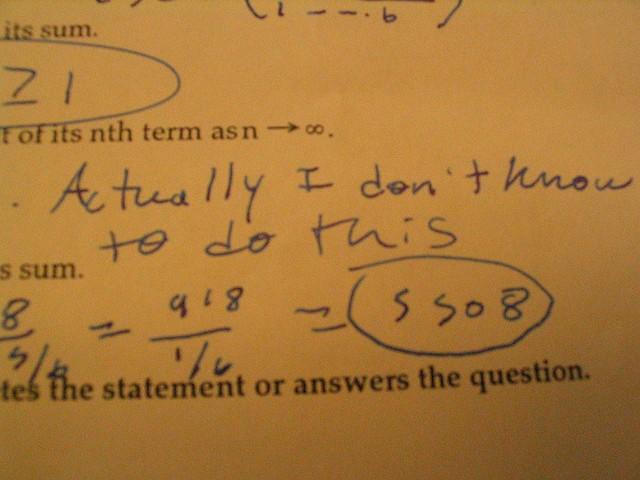 its sum.
(1 - - . 6 )
≥ 1
t of its nth term as n → ∞.
. Actually I don't know
to do this
s sum.
8 = 918 = 5508
5/6 1/6
tes the statement or answers the question.